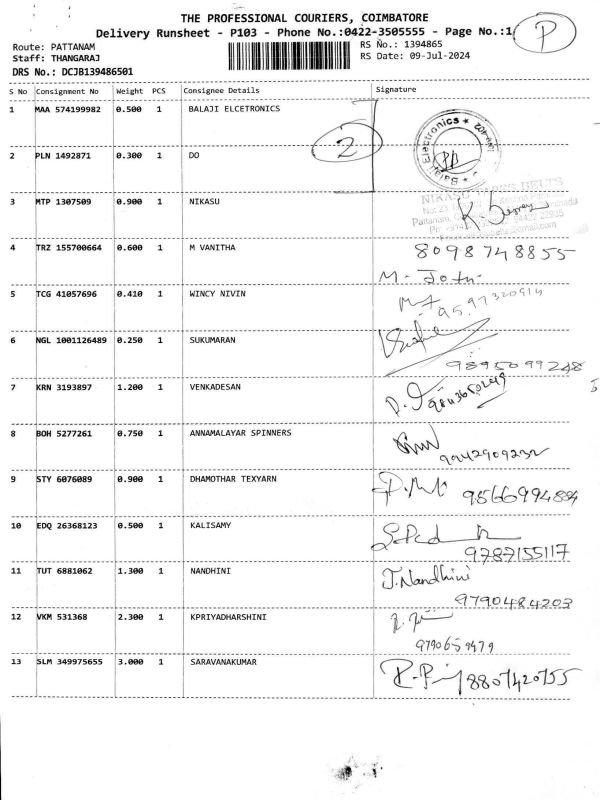 THE PROFESSIONAL COURIERS, COIMBATORE
Delivery Runsheet - P103 - Phone No.:0422-3505555 - Page No.:1
P
Route: PATTANAM
RS No.: 1394865
Staff: THANGARAJ
RS Date: 09-Jul-2024
DRS No.: DCJB139486501
S No Consignment No Weight PCS Consignee Details Signature
1 MAA 574199982 0.500 1 BALAJI ELCETRONICS
Balaji Electronics
2
2 PLN 1492871 0.300 1 DO
3 MTP 1307509 0.900 1 NIKASU
NIKASU
4 TRZ 155700664 0.600 1 M VANITHA 8098748855
5 TCG 41057696 0.410 1 WINCY NIVIN 9597320914
6 NGL 1001126489 0.250 1 SUKUMARAN
9895099248
7 KRN 3193897 1.200 1 VENKADESAN
8 BOH 5277261 0.750 1 ANNAMALAYAR SPINNERS
9 STY 6076089 0.900 1 DHAMOTHAR TEXYARN
10 EDQ 26368123 0.500 1 KALISAMY
9787155117
11 TUT 6881062 1.300 1 NANDHINI J. Nandhini
9790484203
12 VKM 531368 2.300 1 KPRIYADHARSHINI
9790659479
13 SLM 349975655 3.000 1 SARAVANAKUMAR 8807420755